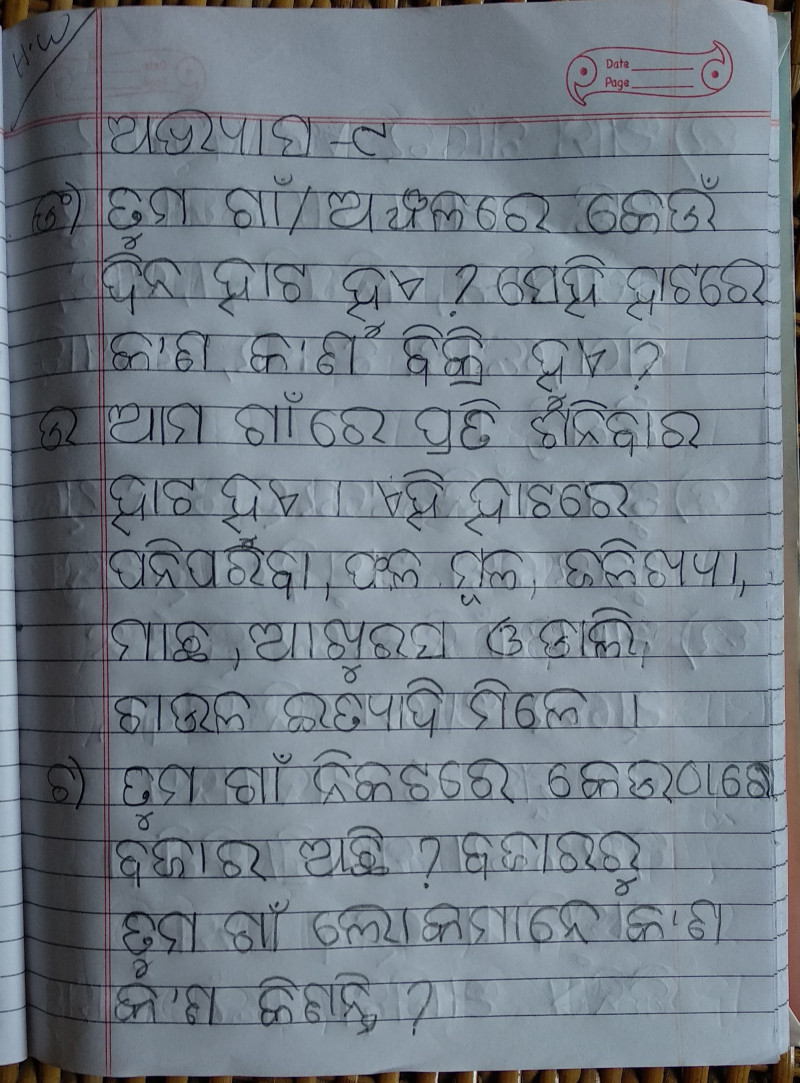 H.W
Date
Page
ଅଭ୍ୟାସ -୯
ଙ) ତୁମ ଗାଁ/ଅଞ୍ଚଳରେ କେଉଁ
ଦିନ ହାଟ ହୁଏ ? ସେହି ହାଟରେ
କ'ଣ କ'ଣ ବିକ୍ରି ହୁଏ ?
ଉ ଆମ ଗାଁରେ ପ୍ରତି ଶନିବାର
ହାଟ ହୁଏ । ଏହି ହାଟରେ
ପନିପରିବା, ଫଳ ମୂଳ,
ମାଛ, ଓ ଡାଲି,
ଚାଉଳ ଇତ୍ୟାଦି ମିଳେ ।
ଚ) ତୁମ ଗାଁ ନିକଟରେ କେଉଠାରେ
ବଜାର ଅଛି ? ବଜାରରୁ
ତୁମ ଗାଁ ଲୋକମାନେ କ'ଣ
କ'ଣ କିଣନ୍ତି ?